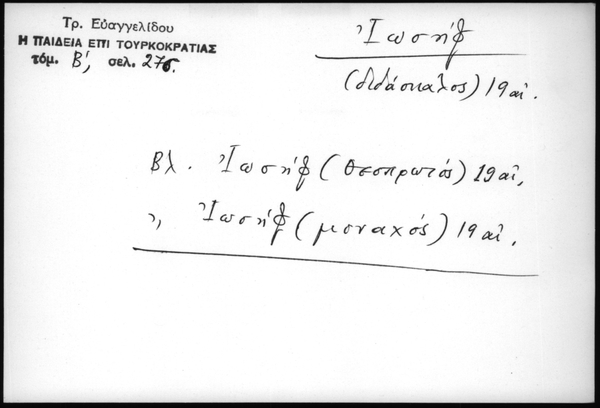 Τρ. Εὐαγγελίδου
Η ΠΑΙΔΕΙΑ ΕΠΙ ΤΟΥΡΚΟΚΡΑΤΙΑΣ
τόμ. Β', σελ. 275.
Ἰωσήφ
(διδάσκαλος) 19 αἰ.
Βλ. Ἰωσήφ (Θεσπρωτός) 19 αἰ,
" Ἰωσήφ (μοναχός) 19 αἰ.